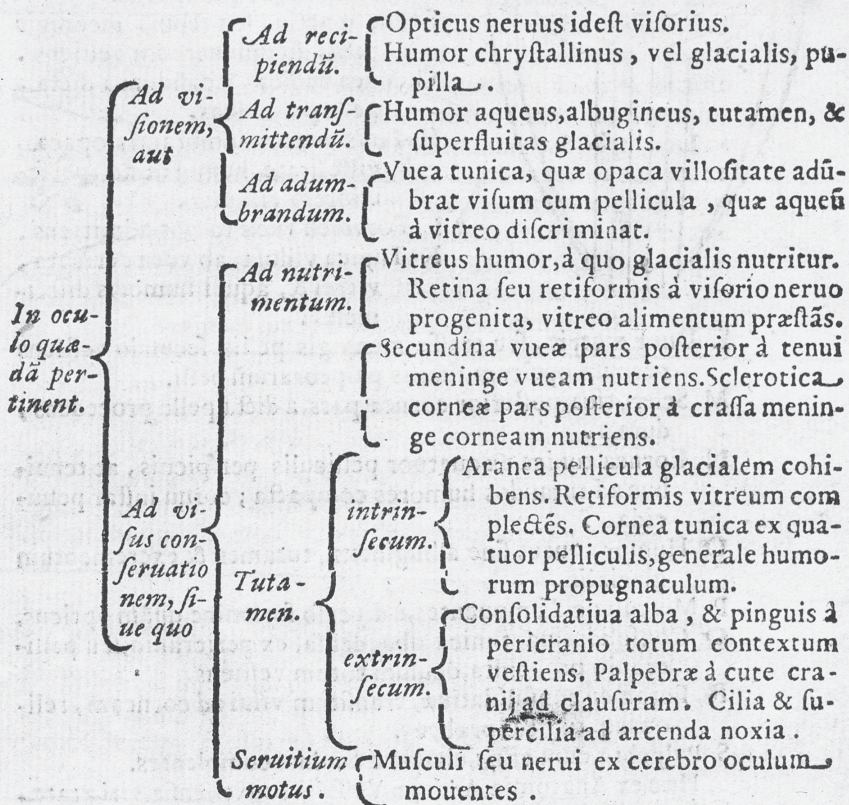 In ocu-
lo quæ-
dā per-
tinent.
Ad vi-
ſionem,
aut
Ad reci-
piendū.
Opticus neruus ideſt viſorius.
Humor chryſtallinus, vel glacialis, pu-
pilla.
Ad tranſ-
mittendū.
Humor aqueus, albugineus, tutamen, &
ſuperfluitas glacialis.
Ad adum-
brandum.
Vuea tunica, quæ opaca villoſitate adū-
brat viſum cum pellicula, quæ aqueū
à vitreo diſcriminat.
Ad vi-
ſus con-
ſeruatio
nem, ſi-
ue quo
Ad nutri-
mentum.
Vitreus humor, à quo glacialis nutritur.
Retina ſeu retiformis à viſorio neruo
progenita, vitreo alimentum præſtās.
Secundina vueæ pars poſterior à tenui
meninge vueam nutriens. Sclerotica
corneæ pars poſterior à craſſa menin-
ge corneam nutriens.
Tuta-
men.
intrin-
ſecum.
Aranea pellicula glacialem cohi-
bens. Retiformis vitreum com
plectēs. Cornea tunica ex qua-
tuor pelliculis, generale humo-
rum propugnaculum.
extrin-
ſecum.
Conſolidatiua alba, & pinguis à
pericranio totum contextum
veſtiens. Palpebræ à cute cra-
nij ad clauſuram. Cilia & ſu-
percilia ad arcenda noxia.
Seruitium
motus.
Muſculi ſeu nerui ex cerebro oculum
mouentes